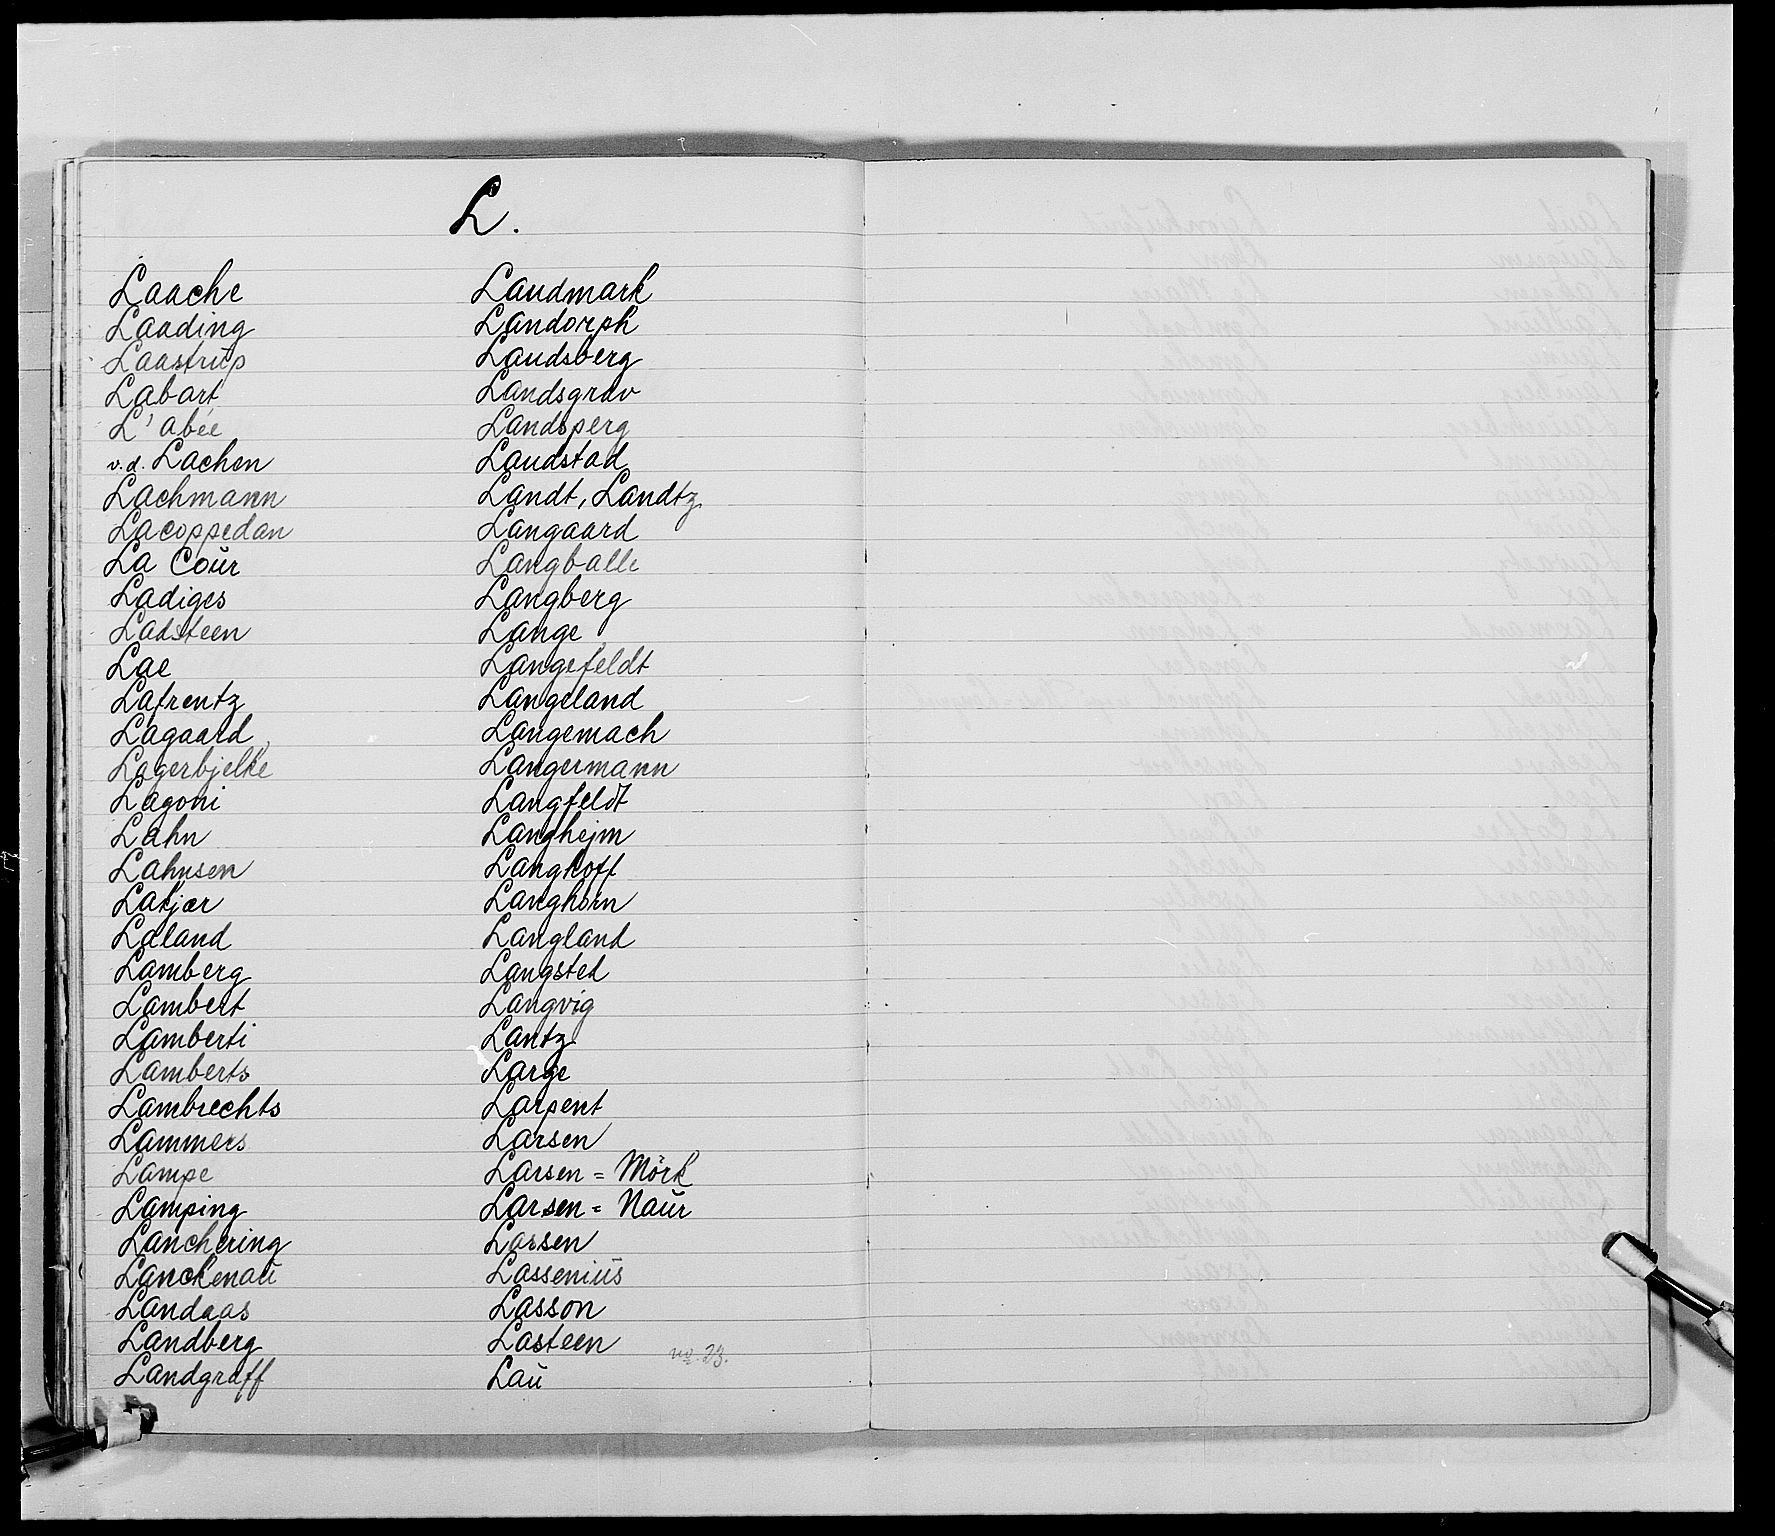 L.
Laache
Laading
Laastrup
Labart
L'abée
v.d. Lachen
Lachmann
Lacoppedan
La Cour
Ladiges
Ladsteen
Lae
Lafrentz
Lagaard
Lagerbjelke
Lagoni
Lahn
Lahnsen
Lakjær
Laland
Lamberg
Lambert
Lamberti
Lamberts
Lambrechts
Lammers
Lampe
Lamping
Lanchering
Lanckenau
Landaas
Landberg
Landgraff
Landmark
Landorph
Landsberg
Landsgrav
Landsperg
Landstad
Landt, Landtz
Langaard
Langballe
Langberg
Lange
Langefeldt
Langeland
Langemach
Langermann
Langfeldt
Langhejm
Langhoff
Langhorn
Langland
Langsted
Langvig
Lantz
Large
Larpent
Larsen
Larsen = Mörk
Larsen = Naur
Lassen
Lassenius
Lasson
Lasteen
Lau
no. 23.